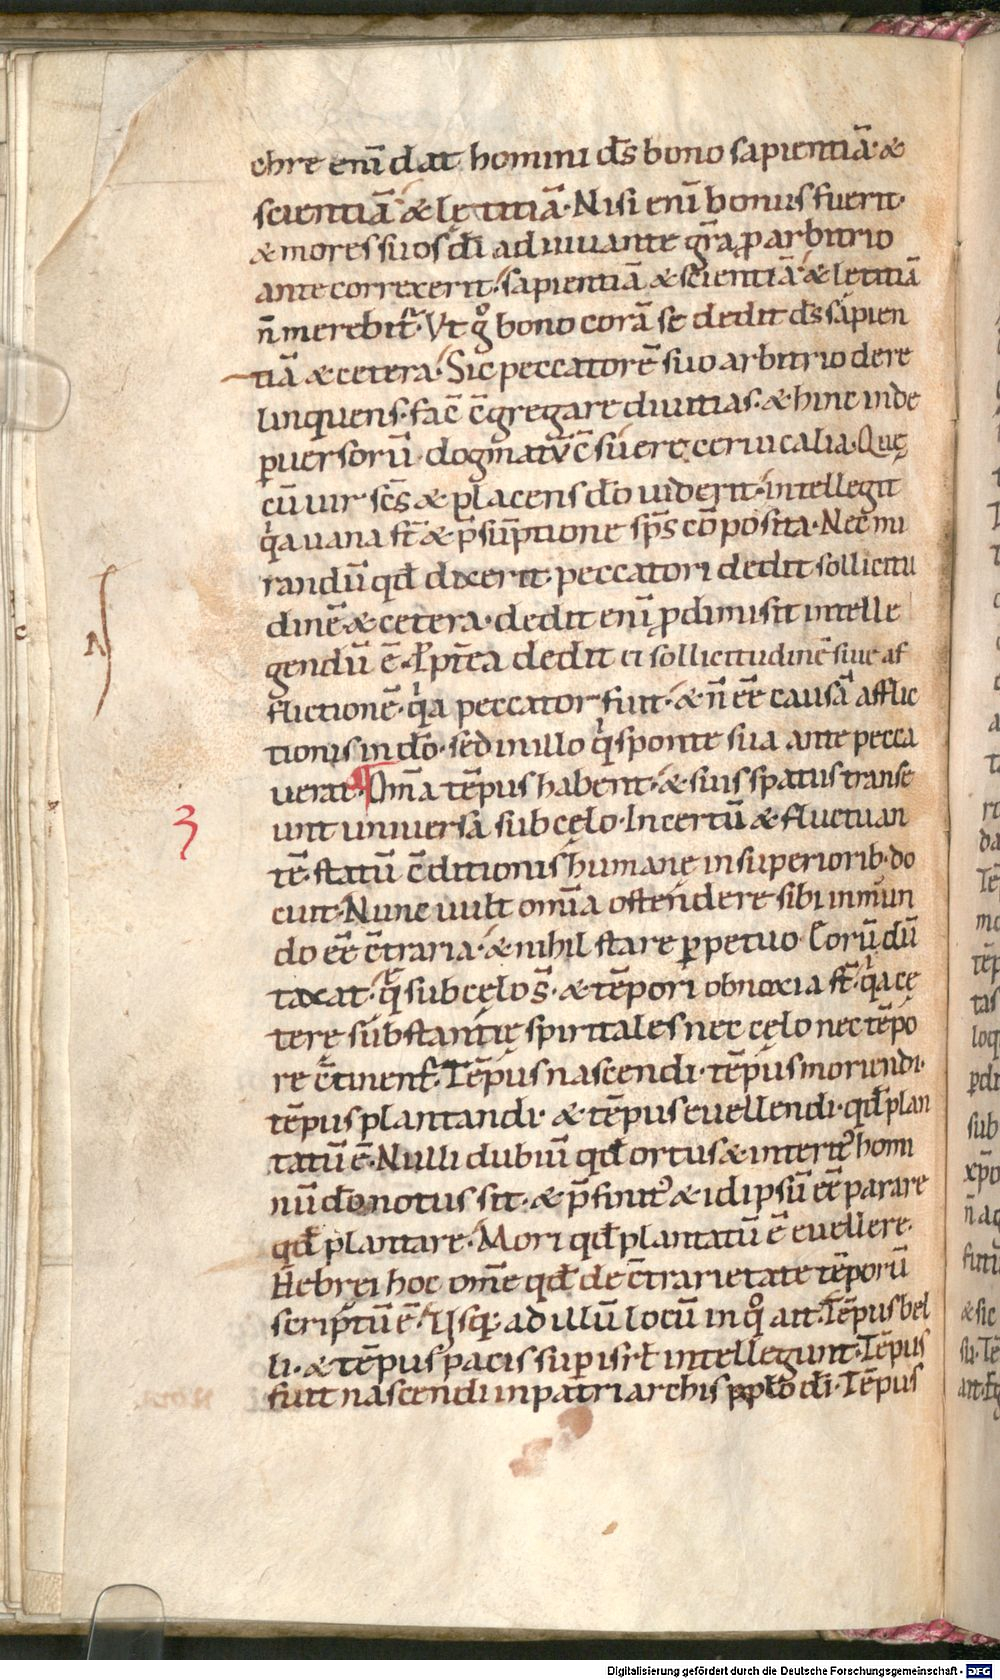 chre enī dat homini ds̄ bono sapientiā· &
scientiā & lętitiā· Nisi enī bonus fuerit·
& mores suos dī adiuuante gr̄a ꝓ arbitrio
ante correxerit· sapientiā & scientiā & lętitiā
n̄ merebit᷒· Vt gͦ bono corā se dedit ds̄ sapien
tiā & cetera· Sic peccatorē suo arbitrio dere
linquens· fac̄ c̄gregare diuitias· & hinc inde
ꝑuersorū dogmatū c̄suere ceruicalia· Quę
cū uir sc̄s & placens dō uiderit· intellegit
qͥa uana st̄ & p̄sūptione sp̄s cōposita· Nec mi
randū qd̄ dixerit· peccatori dedit sollicitu
dinē & cetera· dedit enī ꝓdimisit intelle
gendū ē· Ꝓpt̄ea dedit ei sollicitudinē siue af
flictionē· qͥa peccator fuit· & n̄ eē causā afflic
tionis in dō· sed in illo qͥ sponte sua ante pecca
uerat· Om̄a tēpus habent· & suis spatiis transe
unt uniuersa sub cęlo· Incertū & fluctuan
tē statū c̄ditionis humanę in superiorib· do
cuit· Nunc uult om̄ia ostendere sibi in mun
do eē c̄traria· & nihil stare ꝑpetuo· Eorū dū
taxat· q̄ sub cęlo s̄· & tēpori obnoxia st̄· qͥa cę
terę substantię spiritales nec cęlo nec tēpo
re c̄tinent᷒· Tēpus nascendi· tēpus moriendi·
tēpus plantandi· & tēpus euellendi· qd̄ plan
tatū ē· Nulli dubiū qd̄ ortus & interitꝰ homi
nū dō notus sit· & p̄finitꝰ & idipsū eē parare
qd̄ plantare· Mori qd̄ plantatū ē euellere·
Hebrei hoc om̄e qd̄ de c̄trarietate tēporū
scriptū ē· Vsq; ad illū locū in qͦ ait· Tēpus bel
li· & tēpus pacis suꝑ isrł intellegunt· Tēpus
fuit nascendi in patriarchis ppł̄o dī· Tēpus
3
Digitalisierung gefördert durch die Deutsche Forschungsgemeinschaft - DFG